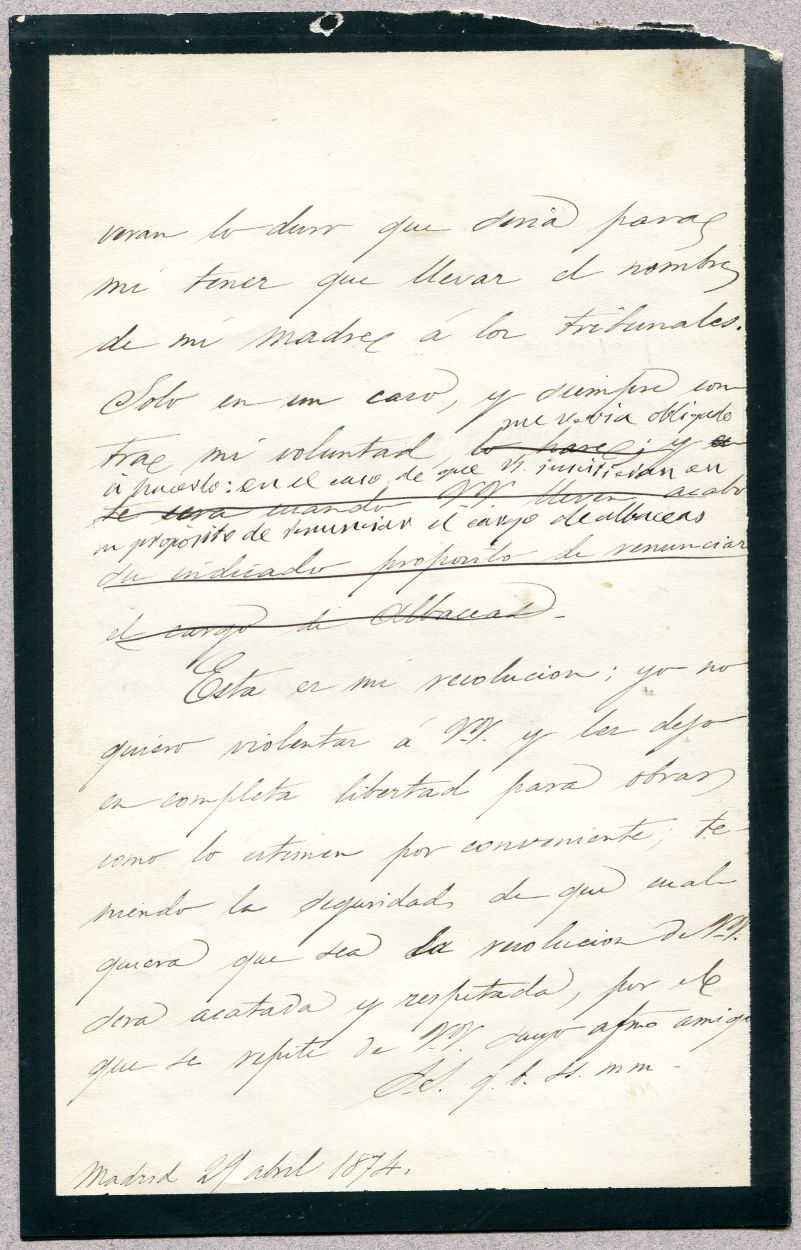 veran lo duro que seria para
mi tener que llevar el nombre
de mi madre á los tribunales.
Solo en un caso, y siempre con
me veria obligado
tra mi voluntad, lo haré; y e
á hacerlo: en el caso de que VV. insistieran en
te sera cuando VV. lleven acabo
su proposito de renunciar el cargo de albaceas
su indicado proposito de renunciar
el cargo de Albaceas.
Esta es mi resolucion; yo no
quiero violentar á VV. y les dejo
en completa libertad para obrar
como lo estimen por conveniente; te-
niendo la seguridad de que cual
quiera que sea la resolucion de VV.
sera acatada y respetada, por el
que se repite de VV. suyo afmo amigo
S.S. q. b. ss. mm.
Madrid 29 abril 1874.